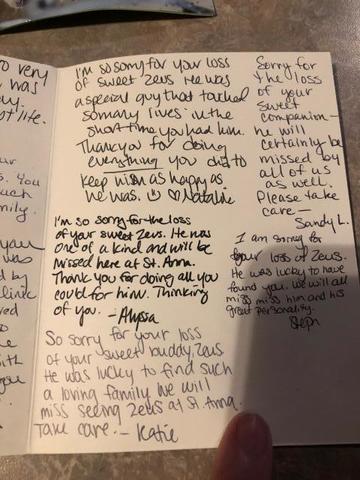 o very
was
ay.
pt life.
our
s. You
such
mily.
you
was
d by
link
ved
s
o
with
you
I'm so sorry for your loss
of sweet Zeus. He was
a special guy that touched
so many lives in the
short time you had him.
Thank you for doing
everything you did to
keep him as happy as
he was. ☺ ♡ Natalie
I'm so sorry for the loss
of your sweet Zeus. He was
one of a kind and will be
missed here at St. Anna.
Thank you for doing all you
could for him. Thinking
of you. - Alyssa
So sorry for your loss
of your sweet buddy, Zeus
He was lucky to find such
a loving family. We will
miss seeing Zeus at St. Anna.
Take care. - Katie
Sorry for
the loss
of your
sweet
companion -
he will
certainly be
missed by
all of us
as well.
Please take
care -
Sandy L.
I am sorry for
your loss of Zeus.
He was lucky to have
found you. We will all
miss miss him and his
great personality.
Steph